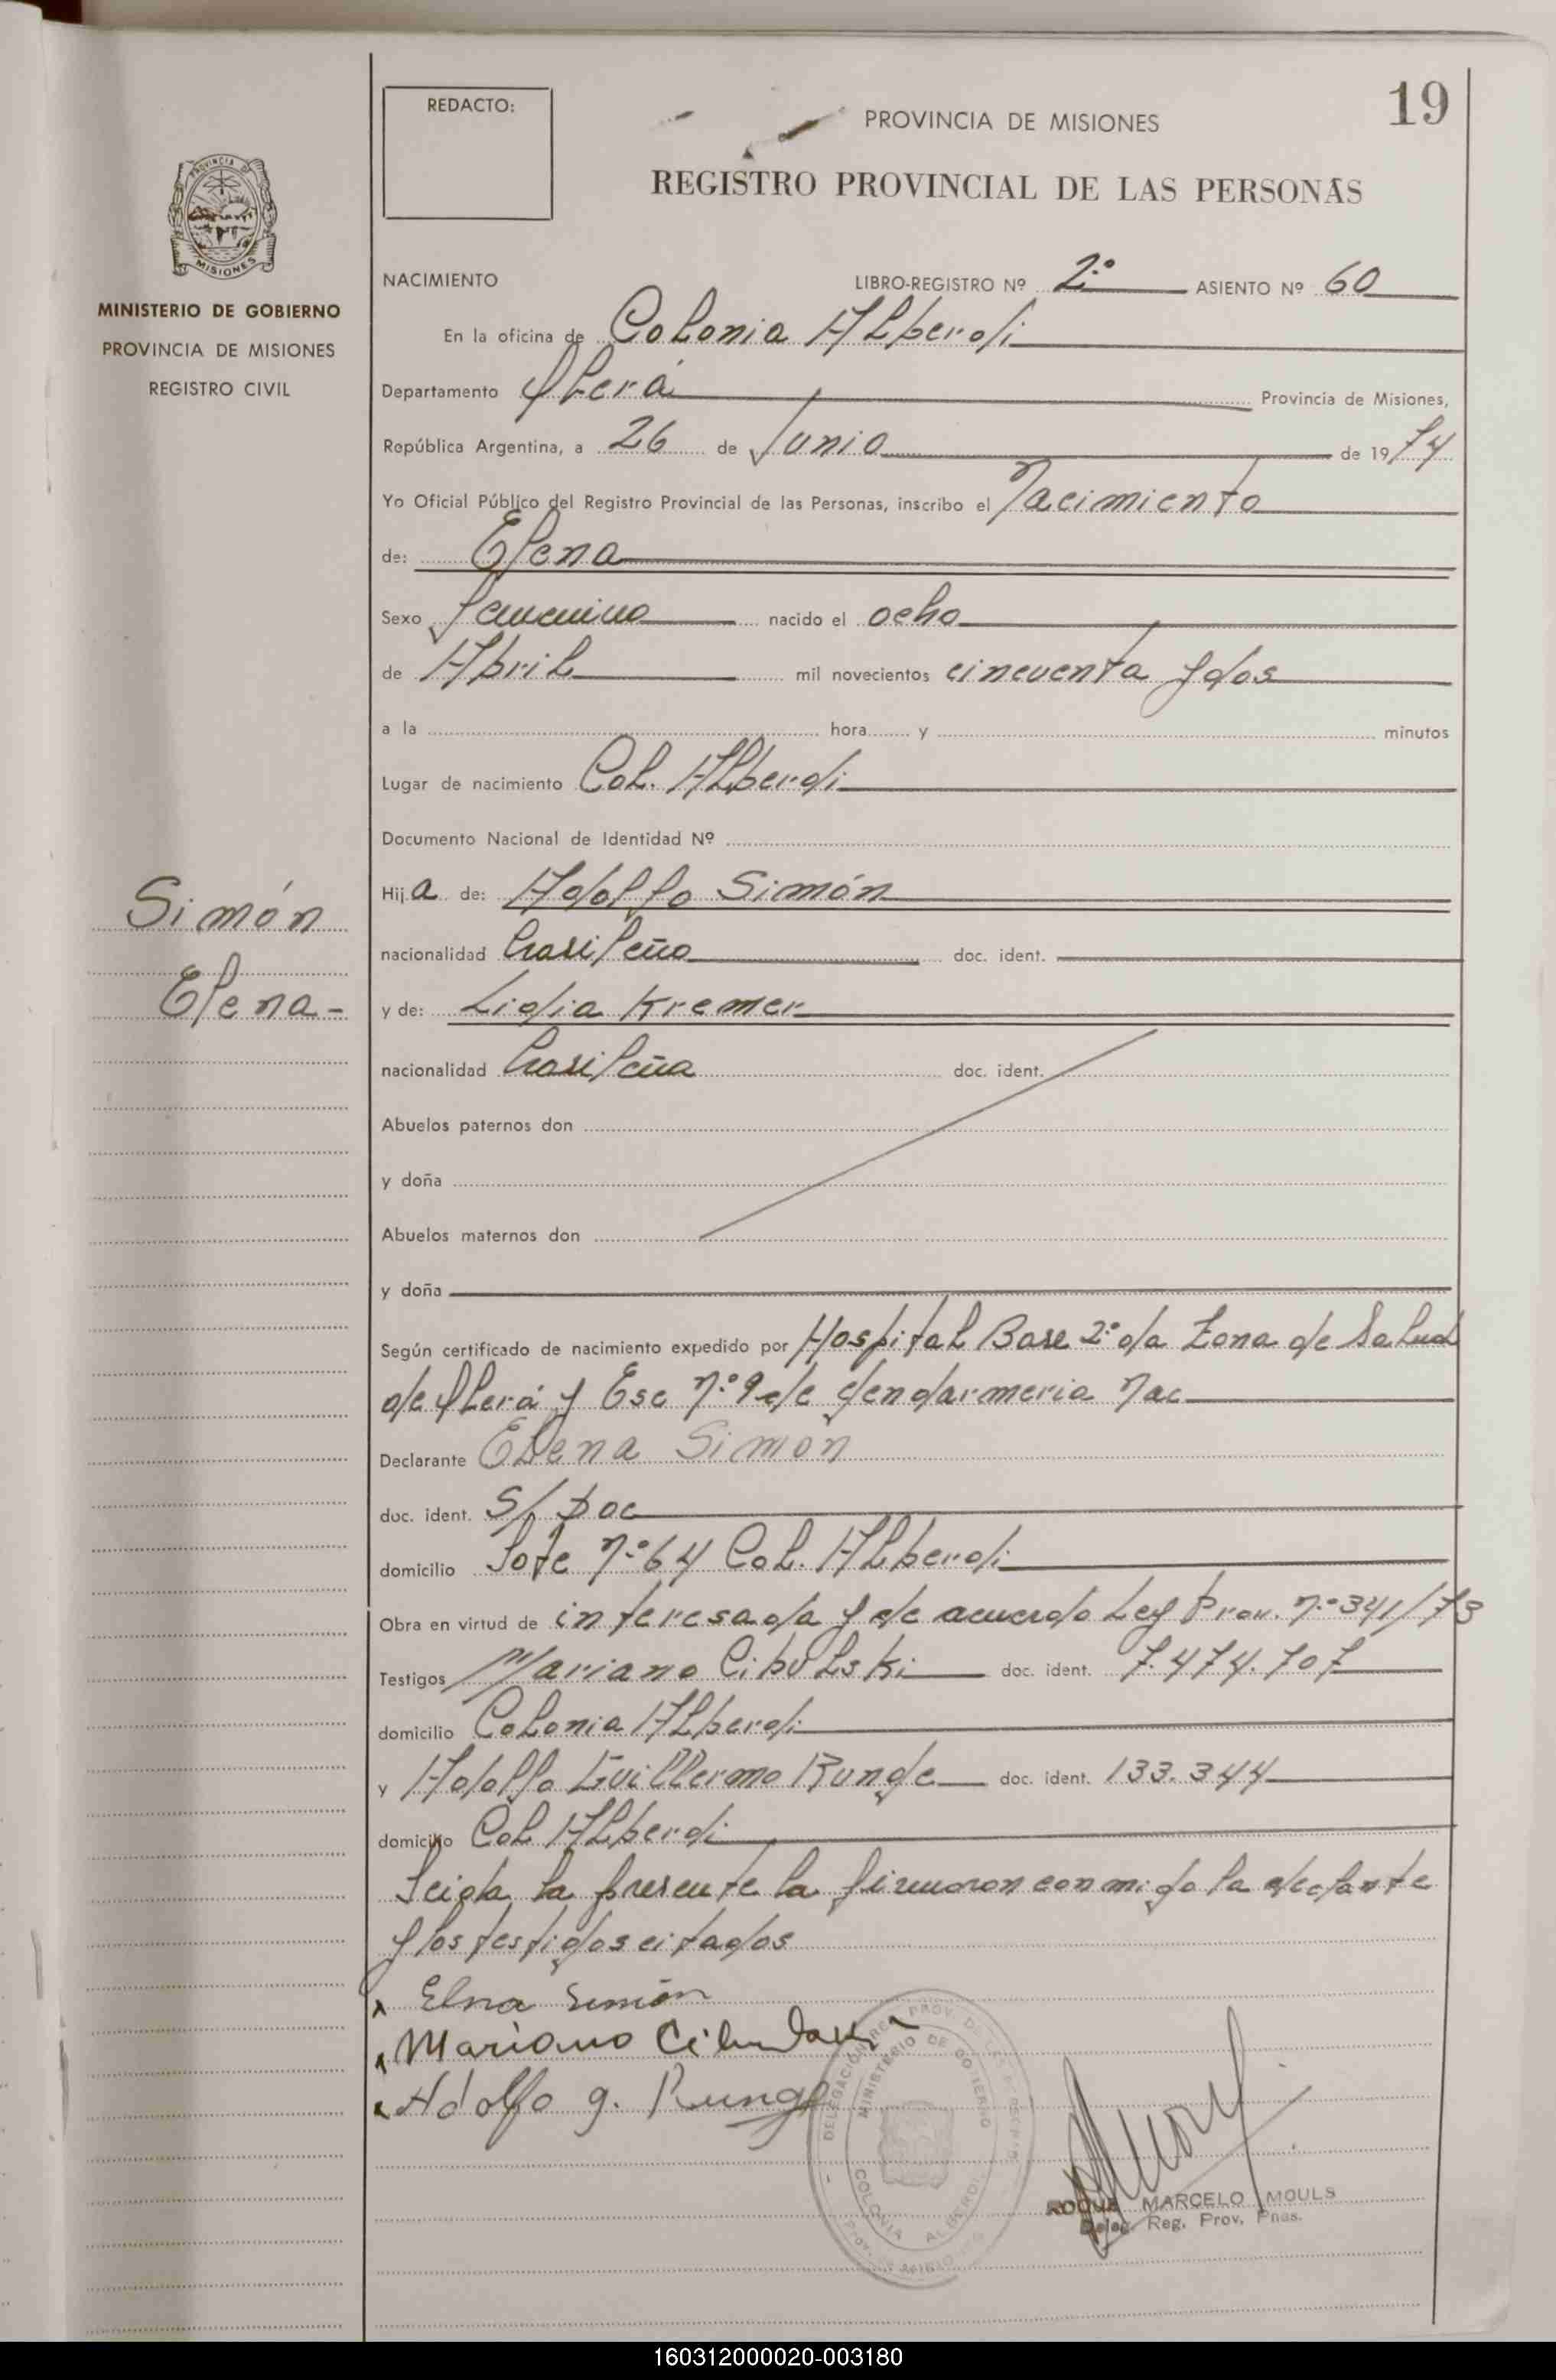 19
REDACTO:
PROVINCIA DE MISIONES
REGISTRO PROVINCIAL DE LAS PERSONAS
PROVINCIA DE
MISIONES
MINISTERIO DE GOBIERNO
PROVINCIA DE MISIONES
REGISTRO CIVIL
NACIMIENTO LIBRO-REGISTRO Nº 2º ASIENTO Nº 60
En la oficina de Colonia Alberdi
Departamento Oberá Provincia de Misiones,
República Argentina, a 26 de Junio de 1974
Yo Oficial Público del Registro Provincial de las Personas, inscribo el Nacimiento
de: Elena
Sexo femenino nacido el ocho
de Abril mil novecientos cincuenta y dos
a la hora y minutos
Lugar de nacimiento Col. Alberdi
Documento Nacional de Identidad Nº
Simón
Elena-
Hija de: Adolfo Simón
nacionalidad brasileño doc. ident.
y de: Lidia Kremer
nacionalidad brasileña doc. ident.
Abuelos paternos don
y doña
Abuelos maternos don
y doña
Según certificado de nacimiento expedido por Hospital Base 2º da Zona de Salud
de Oberá y Esc nº 9 de Gendarmeria Nac
Declarante Elena Simón
doc. ident. S/ Doc
domicilio Lote nº 64 Col. Alberdi
Obra en virtud de interesada y de acuerdo Ley Prov. nº 341/73
Testigos Mariano Cibulski doc. ident. 7.474.707
domicilio Colonia Alberdi
y Adolfo Guillermo Runge doc. ident. 133.344
domicilio Col Alberdi
Leida la presente la firmaron conmigo la declante
y los testigos citados
x Elna Simón
x Mariano
x Adolfo g. Runge
MINISTERIO DE GOBIERNO
COLONIA ALBERDI
ROQUE MARCELO MOULS
Deleg. Reg. Prov. Pnas.
160312000020-003180